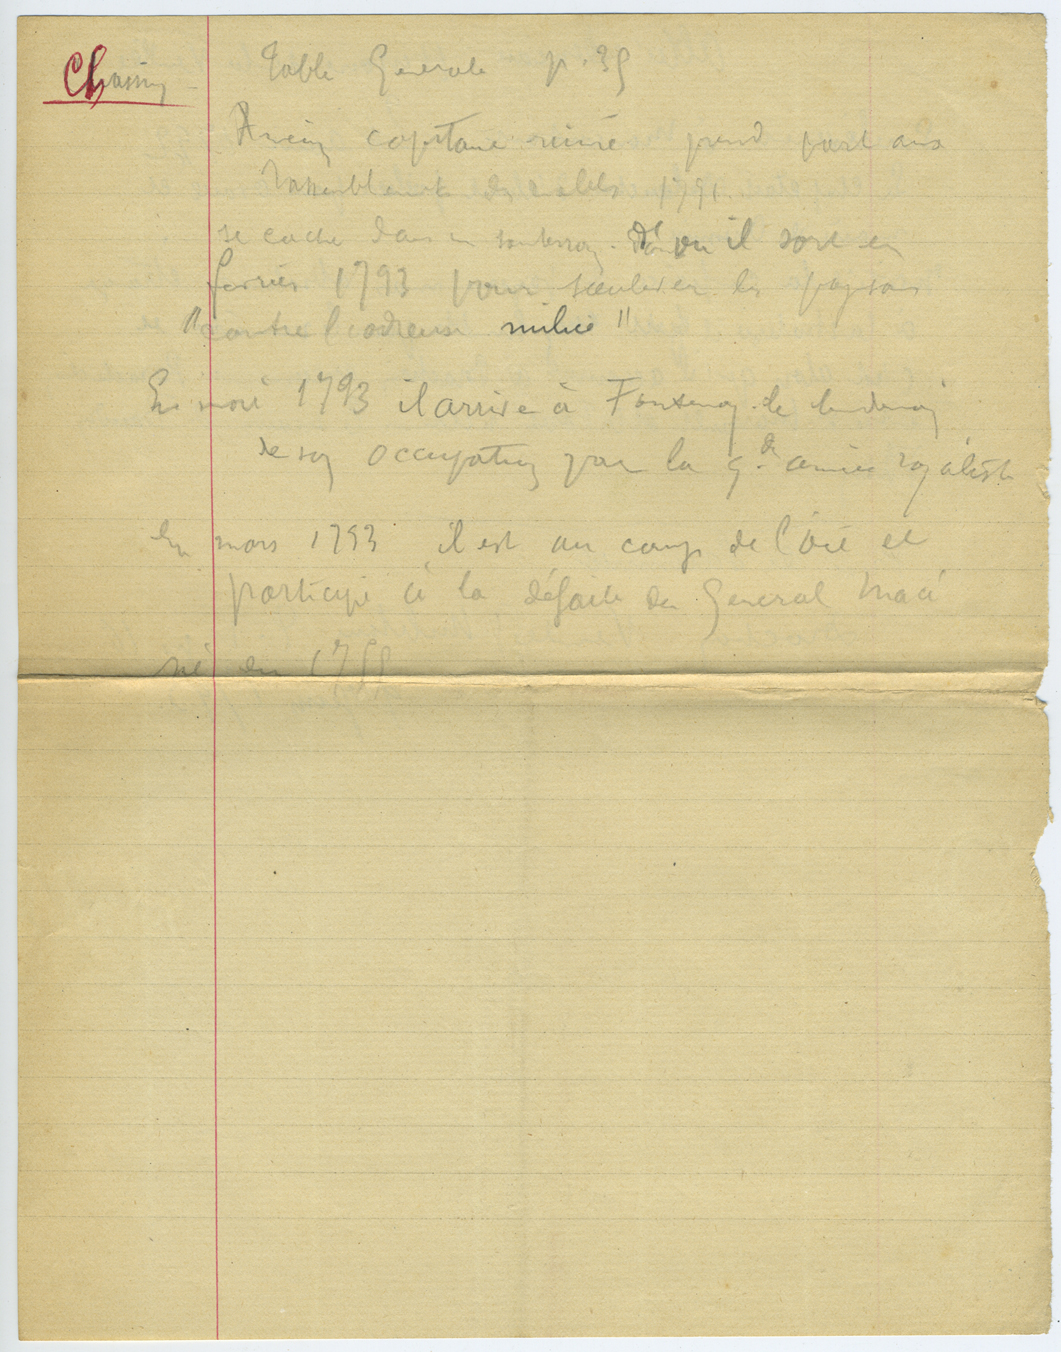 Chassin
Table Generale p. 39
Ancien capitaine ruiné prend part aux
rassemblements des nobles 1791.
se cache dans un souterrain. d'où il sort en
fevrier 1793 pour soulever les paysans
"contre l'odieuse milice"
En mai 1793 il arrive à Fontenay le lendemain
de son occupation par la gde armée royaliste
En mars 1793 il est au camp de l'Oie et
participe à la défaite du General Marcé
né en